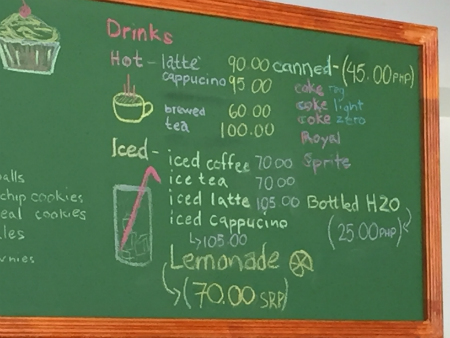 Drinks
Hot - latte 90.00
cappucino 95.00
brewed 60.00
tea 100.00
Iced - iced coffee 70.00
ice tea 70.00
iced latte 105.00
iced cappucino
↳105.00
Lemonade
(70.00 SRP)
canned - (45.00 PHP)
coke reg
coke light
coke zero
Royal
Sprite
Bottled H2O
(25.00 PHP)
alls
chip cookies
eal cookies
les
wnies